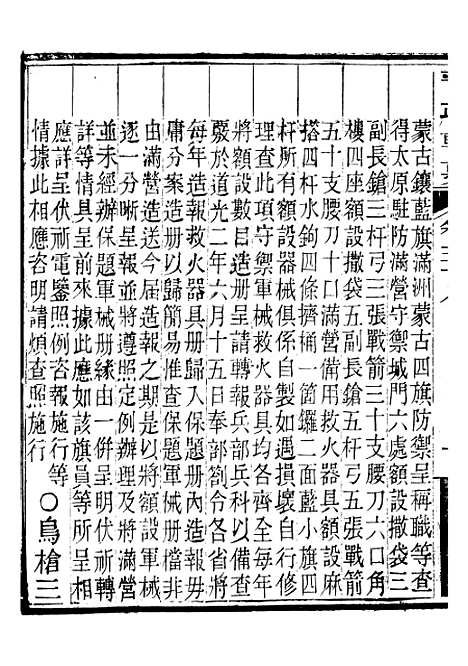 蒙古鑲藍旗滿洲蒙古四旗防禦呈稱職等查
得太原駐防滿營守禦城門六處額設撒袋三
副長鎗三杆弓三張戰箭三十支腰刀六口角
樓四座額設撒袋五副長鎗五杆弓五張戰箭
五十支腰刀十口滿營備用救火器具額設麻
搭四杆水鉤四條擠桶一箇鑼二面藍小旗四
杆所有額設器械俱係自製如遇損壞自行修
理查此項守禦軍械救火器具均各齊全每年
將額設數目造册呈請轉報兵部兵科以備查
覈於道光二年六月十五日奉部劄令各省將
每年造報救火器具册歸入保題册內造報毋
庸分案造册以歸簡易惟查保題軍械册檔非
由滿營造送今屆造報之期是以將軍械器具
逐一分晰呈報並將遵照定例辦理及將滿營
並未經辦保題軍械册緣由一併呈明祈轉
詳等情具呈前來據此應如該旗員等所呈相
應詳呈伏祈電鑒照例咨報施行等
情據此相應咨明請煩查照施行 〇鳥槍三